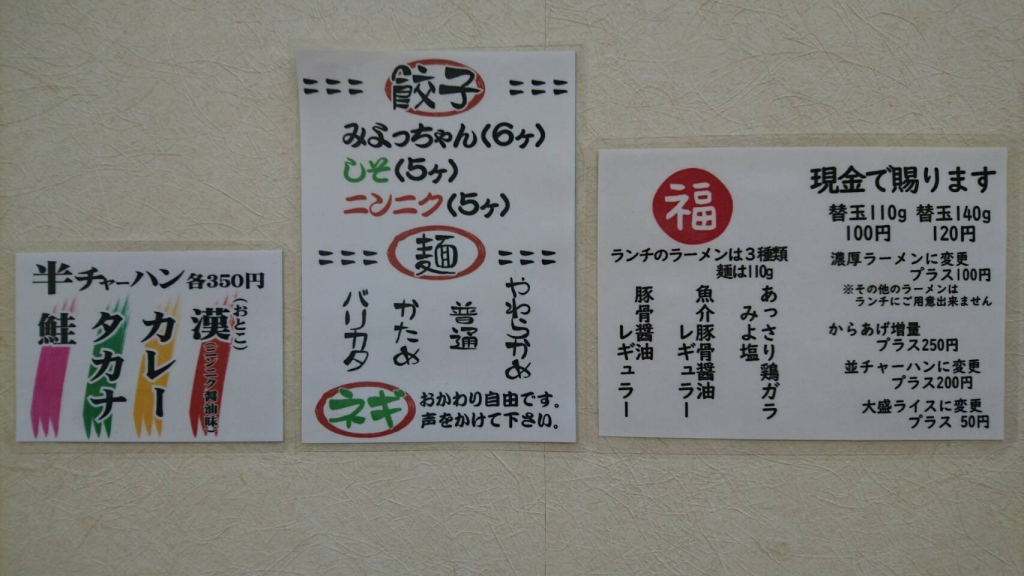 半チャーハン 各350円
漢（おとこ）（ニンニク醤油味）
カレー
タカナ
鮭
=== 餃子 ===
みよっちゃん(6ヶ)
しそ(5ヶ)
ニンニク(5ヶ)
=== 麺 ===
やわらかめ
普通
かため
バリカタ
ネギ おかわり自由です。
声をかけて下さい。
福
ランチのラーメンは３種類
麺は110g
あっさり鶏ガラ
みよ塩
魚介豚骨醤油
レギュラー
豚骨醤油
レギュラー
現金で賜ります
替玉110g 替玉140g
100円 120円
濃厚ラーメンに変更
プラス100円
※その他のラーメンは
ランチにご用意出来ません
からあげ増量
プラス250円
並チャーハンに変更
プラス200円
大盛ライスに変更
プラス 50円